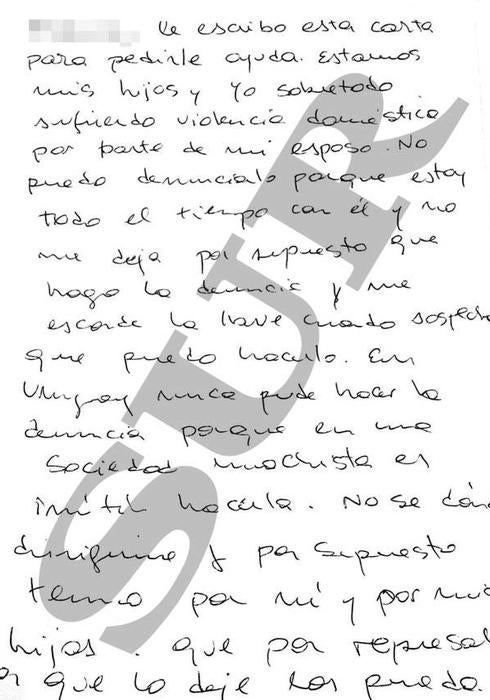 Le escribo esta carta
para pedirle ayuda. Estamos
mis hijos y yo sobretodo
sufriendo violencia doméstica
por parte de mi esposo. No
puedo denuncialo porque estoy
todo el tiempo con él y no
me deja por supuesto que
haga la denuncia y me
esconde la llave cuando sospecha
que puedo hacerlo. En
Uruguay nunca pude hacer la
denuncia porque en una
sociedad machista es
inútil hacerla. No se dón
dirigirme y por supuesto
temo por mí y por mis
hijos. que por represal
que lo deje los pueda
SUR